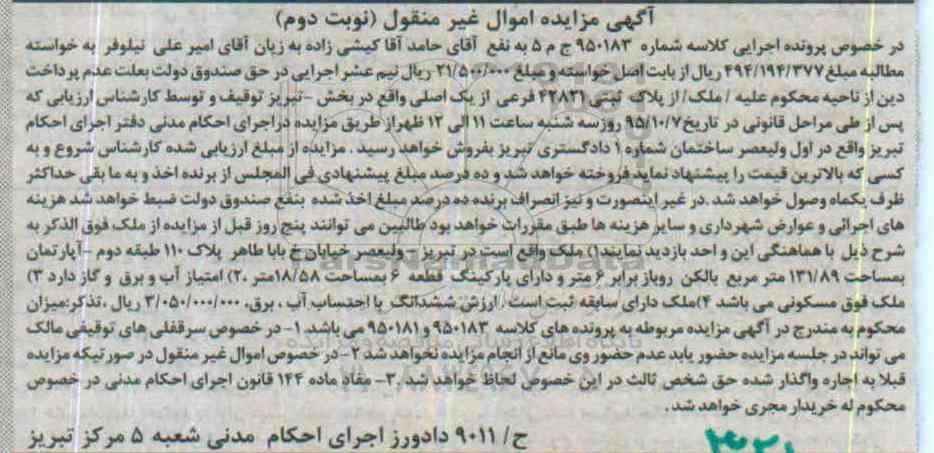 آگهی مزایده اموال غیر منقول (نوبت دوم)
در خصوص پرونده اجرایی کلاسه شماره ۹۵۰۱۸۳ ج م ۵ به نفع آقای حامد آقا کیشی زاده به زیان آقای امیر علی نیلوفر به خواسته
مطالبه مبلغ ۴۹۴/۱۹۴/۳۷۷ ریال از بابت اصل خواسته و مبلغ ۲۱/۵۰۰/۰۰۰ ریال نیم عشر اجرایی در حق صندوق دولت بعلت عدم پرداخت
دین از ناحیه محکوم علیه / ملک/ از پلاک ثبتی ۴۲۸۳۱ فرعی از یک اصلی واقع در بخش -تبریز توقیف و توسط کارشناس ارزیابی که
پس از طی مراحل قانونی در تاریخ ۹۵/۱۰/۷ روز سه شنبه ساعت ۱۱ الی ۱۲ ظهر از طریق مزایده در اجرای احکام مدنی دفتر اجرای احکام
تبریز واقع در اول ولیعصر ساختمان شماره ۱ دادگستری تبریز بفروش خواهد رسید . مزایده از مبلغ ارزیابی شده کارشناس شروع و به
کسی که بالاترین قیمت را پیشنهاد نماید فروخته خواهد شد و ده درصد مبلغ پیشنهادی فی المجلس از برنده اخذ و به ما بقی حداکثر
ظرف یکماه وصول خواهد شد .در غیر اینصورت و نیز انصراف برنده ده درصد مبلغ اخذ شده بنفع صندوق دولت ضبط خواهد شد هزینه
های اجرائی و عوارض شهرداری و سایر هزینه ها طبق مقررات خواهد بود طالبین می توانند پنج روز قبل از مزایده از ملک فوق الذکر به
شرح ذیل با هماهنگی این و احد بازدید نمایند ۱) ملک واقع است در تبریز - ولیعصر خیابان خ بابا طاهر پلاک ۱۱۰ طبقه دوم -آپارتمان
بمساحت ۱۳۱/۸۹ متر مربع بالکن روباز برابر ۶ متر و دارای پارکینگ قطعه ۶ بمساحت ۱۸/۵۸متر .۲) امتیاز آب و برق و گاز دارد ۳)
ملک فوق مسکونی می باشد ۴)ملک دارای سابقه ثبت است / ارزش ششدانگ با احتساب آب ، برق، ۳/۰۵۰/۰۰۰/۰۰۰ ریال .تذکر:میزان
محکوم به مندرج در آگهی مزایده مربوطه به پرونده های کلاسه ۹۵۰۱۸۳ و ۹۵۰۱۸۱ می باشد. ۱- در خصوص سرقفلی های توقیفی مالک
می تواند در جلسه مزایده حضور یابد عدم حضور وی مانع از انجام مزایده نخواهد شد ۲- در خصوص اموال غیر منقول در صورتیکه مزایده
قبلا به اجاره واگذار شده حق شخص ثالث در این خصوص لحاظ خواهد شد .۳- مفاد ماده ۱۴۴ قانون اجرای احکام مدنی در خصوص
محکوم له خریدار مجری خواهد شد.
ح/ ۹۰۱۱ دادورز اجرای احکام مدنی شعبه ۵ مرکز تبریز